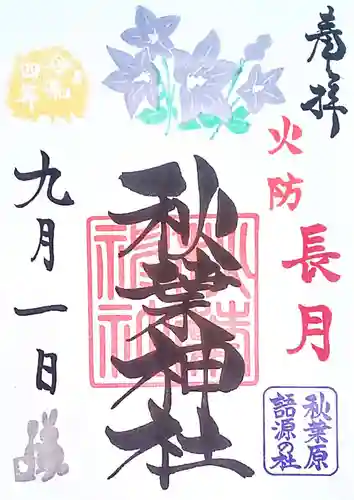 奉拝
火防
長月
秋葉神社
秋葉原
語源の社
九月一日